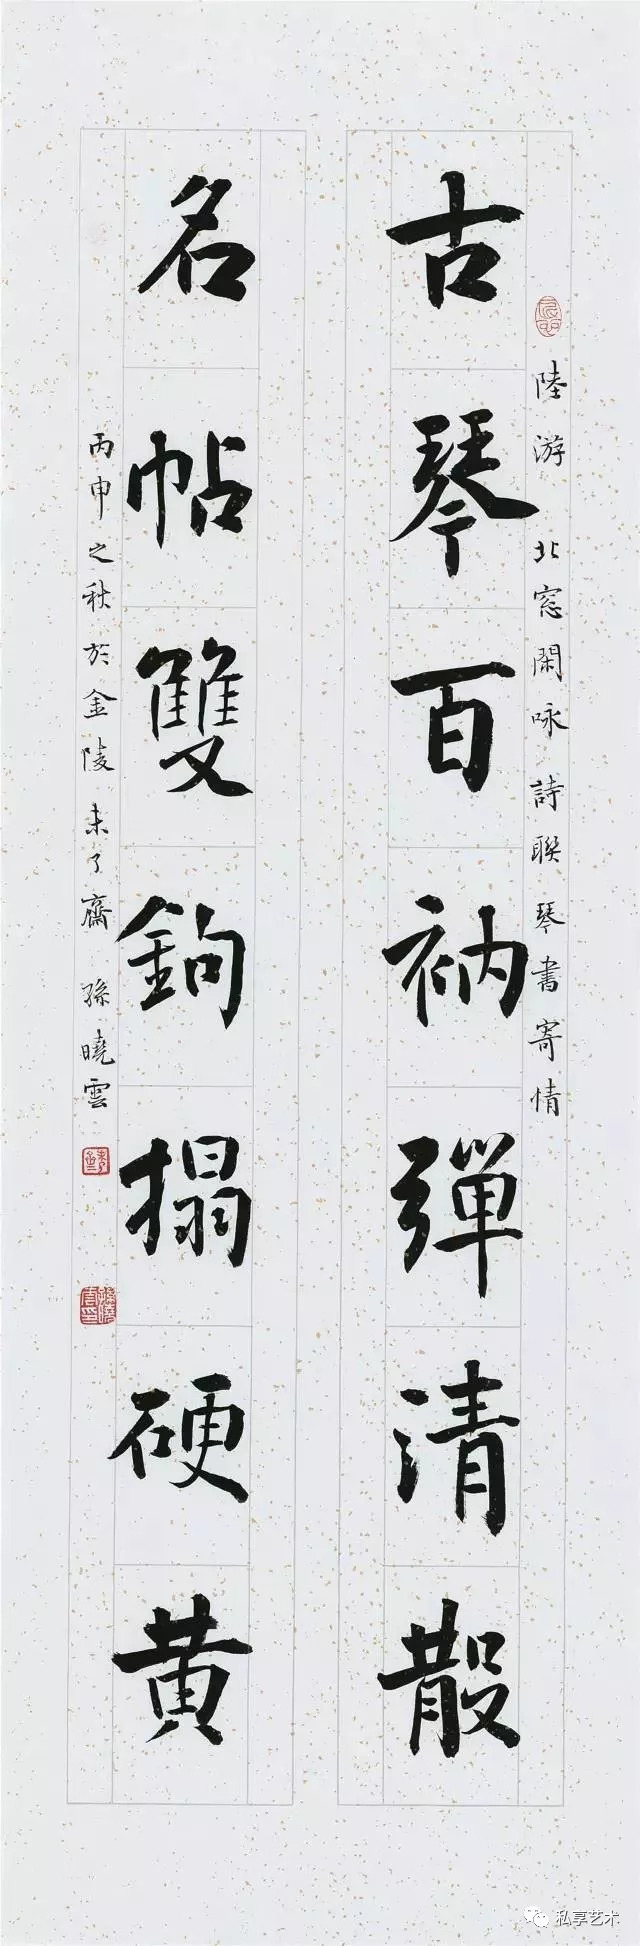 陸游 北窓閑咏 詩聯 琴書寄情
古琴百衲彈清散
名帖雙鉤搨硬黄
丙申之秋於金陵未了齋 孫曉雲
私享艺术